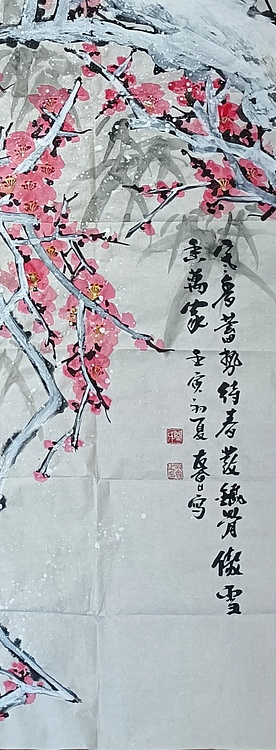 冬寒蓄势待春发铁骨傲雪
香万家 壬寅初夏 春写